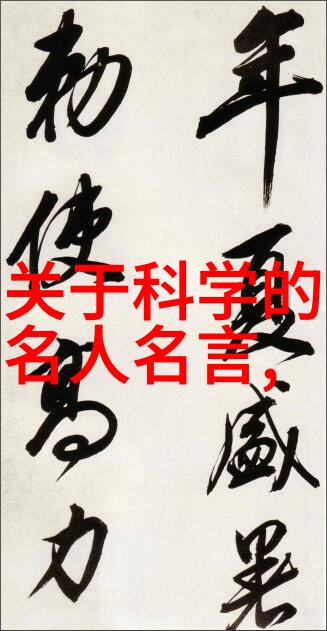 关于科学的
名人名言,
年夏盛暑
勅使高力